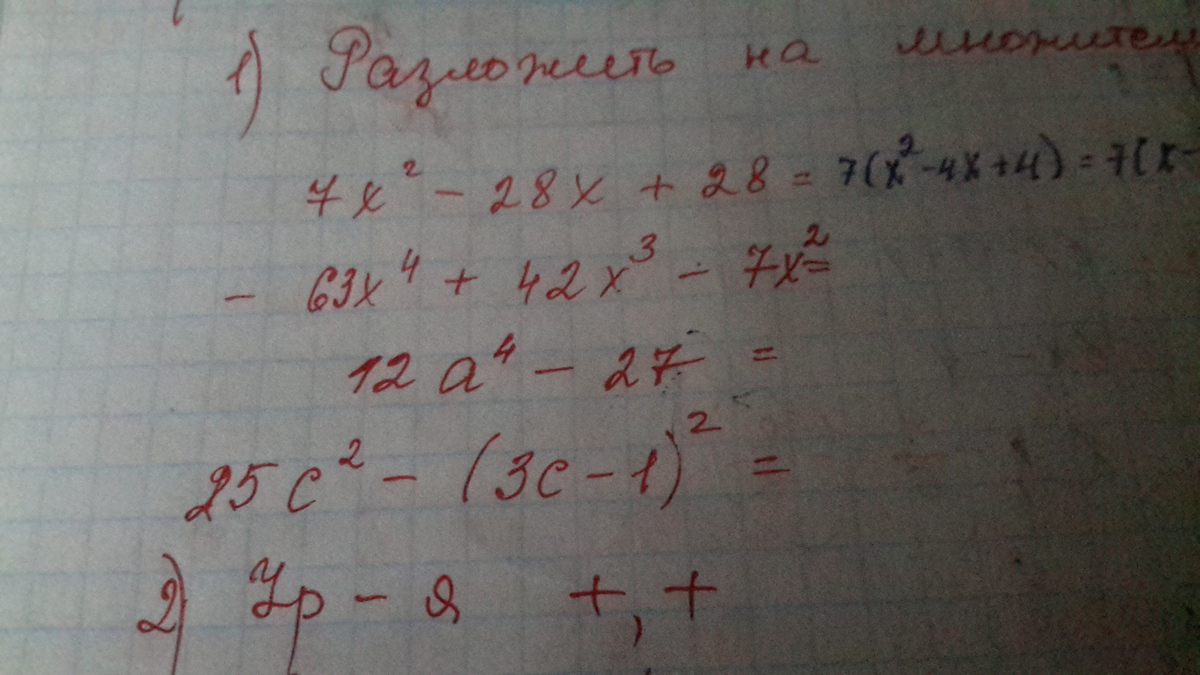 1) Разложить на множители
7x² - 28x + 28 = 7(x² - 4x + 4) = 7(x -
- 63x⁴ + 42x³ - 7x² =
12a⁴ - 27 =
25c² - (3c - 1)² =
2) Ур - я +, +